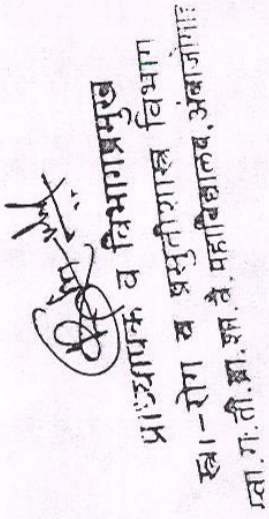 प्राध्यापक व विभागप्रमुख
स्त्री-रोग व प्रसुतीशास्त्र विभाग
स्वा. रा. ती. ग्रा. शा. वै. महाविद्यालय, अंबाजोगाई